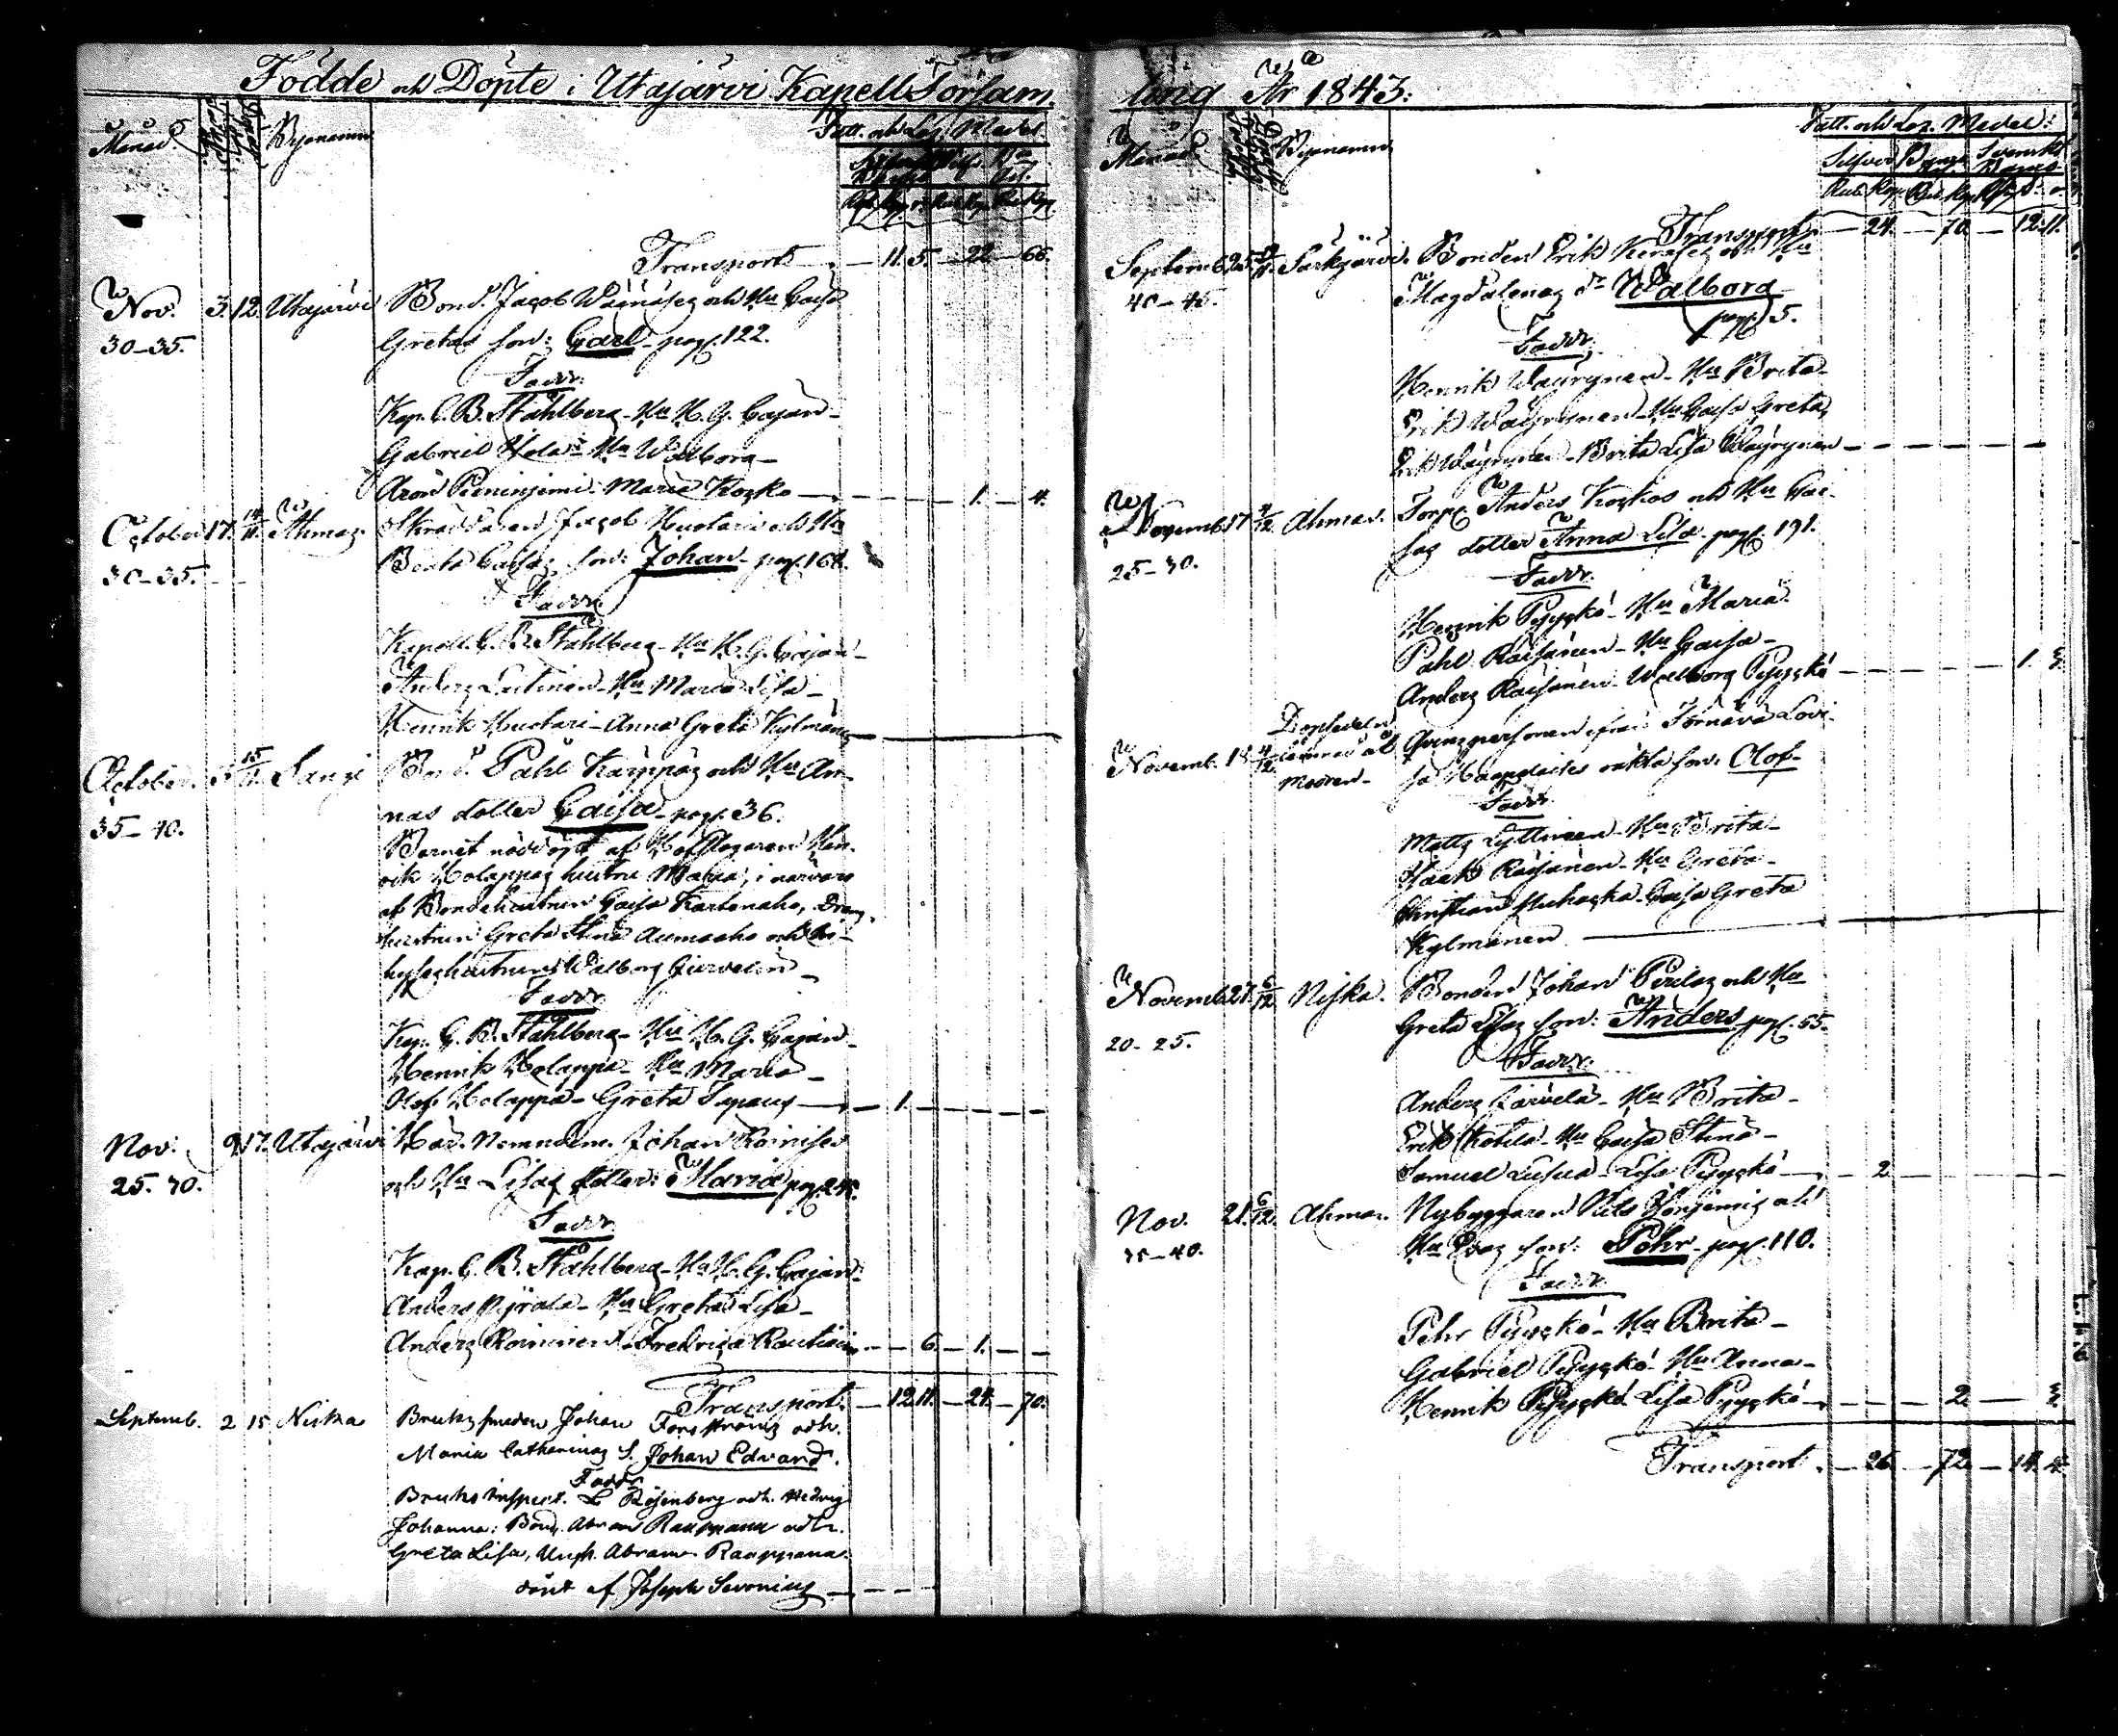 Födde och Döpte i Utajärvi Kapell Försam
Månad Bynamnen
Fatt. och Laz. Medel
Transport 11. 5. 22 66.
Nov. 3. 12. Utajärvi Bond. Jacob Wäinäses och Hu Caisa
30-35. Gretas son: Carl pag. 122.
Faddr.
Kap. C. B. Ståhlberg - Hu H. G. Cajan -
Gabriel Hu Walborg -
Aron Pieniniemi - Maria Kosko 1. 4.
October 17. Ahmas. Skräddaren Jacob Huotaris och Hu
30-35. Caisas son: Johan - pag. 164.
Faddr.
Kapell. C. B. Ståhlberg - Hu H. G. Cajan -
Anders Hu Maria Lisa -
Henrik Huotari - Anna Greta Kylmänen
October. 15/11 Sangi Bond. Påhl Karppas och Hu An-
35-40. nas dotter Caisa - pag. 36.
Barnet nöddöpt af Hofslagaren Hen-
rik Holappas hustru Maria, i närvaro
af Bondehustrun Caisa Kartenaho, Dreng.
hustrun Greta Stina Aumaaho och In-
hyseshustrun Walborg
Faddr.
Kap. C. B. Ståhlberg - Hu H. G. Cajan -
Henrik Holappa - Hu Maria -
Olof Holappa - Greta 1.
Nov. 9. 17. Utajärvi Här. Nemndem. Johan Roinises
25. 30. och Hu Lisas dotter: Maria pag.
Faddr.
Kap. C. B. Ståhlberg - Hu H. G. Cajan -
Anders Hu Greta Lisa -
Anders Roininen - Fredrica Rautiain 6. 1.
Transport. 12. 11. 24. 70.
Septemb. 2 15 Niska Bruks smeden Johan Forsströms och h.
Maria Catharinas S. Johan Edvard.
Faddr
Bruks Inspect. Rosenberg och h. Hedvig
Johanna: Bond. Abram Rauppana och h.
Greta Lisa, Ungk. Abram Rauppana
döpt af Joseph
ling År 1843:
Månad Bynamnen
Fatt. och Laz. Medel:
Silfver Banco Svenskt
Transport 24. 70 12. 11.
Septemb. 25. Särkijärvi. Bonden Erik och Hu
40-45. Magdalenas dr Walborg
pag. 5.
Faddr.
Henrik Wäyrynen - Hu Brita -
Erik Wäyrynen - Hu Caisa Greta
Erik Wäyrynen - Brita Lisa Wäyrynen
Novemb. 17. 4/12 Ahmas. Torp. Anders Koskos och Hu Cai-
25-30. sas dotter Anna Lisa - pag. 191.
Faddr.
Henrik Pyyckö - Hu Maria
Pahl Räisänen - Hu Caisa -
Anders Räisänen - Walborg Pyyckö 1.
Novemb. 4/12 Qvinspersonen ifrån Törnävä Lovi-
modren - sa oäkta son: Olof -
Faddr
Matts Lyttinen - Hu Brita -
Isaak Räisänen - Hu Greta -
Christian Caisa Greta
Kylmänen
Novemb. 27. 6/12 Niska. Bonden Johan och Hu
20-25. Greta Lisas son: Anders pag. 55.
Faddr.
Anders Järvelä - Hu Brita -
Erik Hu Caisa Stina -
Samuel Lisa Pyyckö 2
Nov. 21. 6/12. Ahmas. Nybyggaren Nils och
35-40. Hu Evas son: Pehr - pag. 110.
Faddr.
Pehr Pyyckö - Hu Brita -
Gabriel Pyyckö - Hu Anna -
Henrik Pyyckö Lisa Pyyckö 2
Transport. 26 72